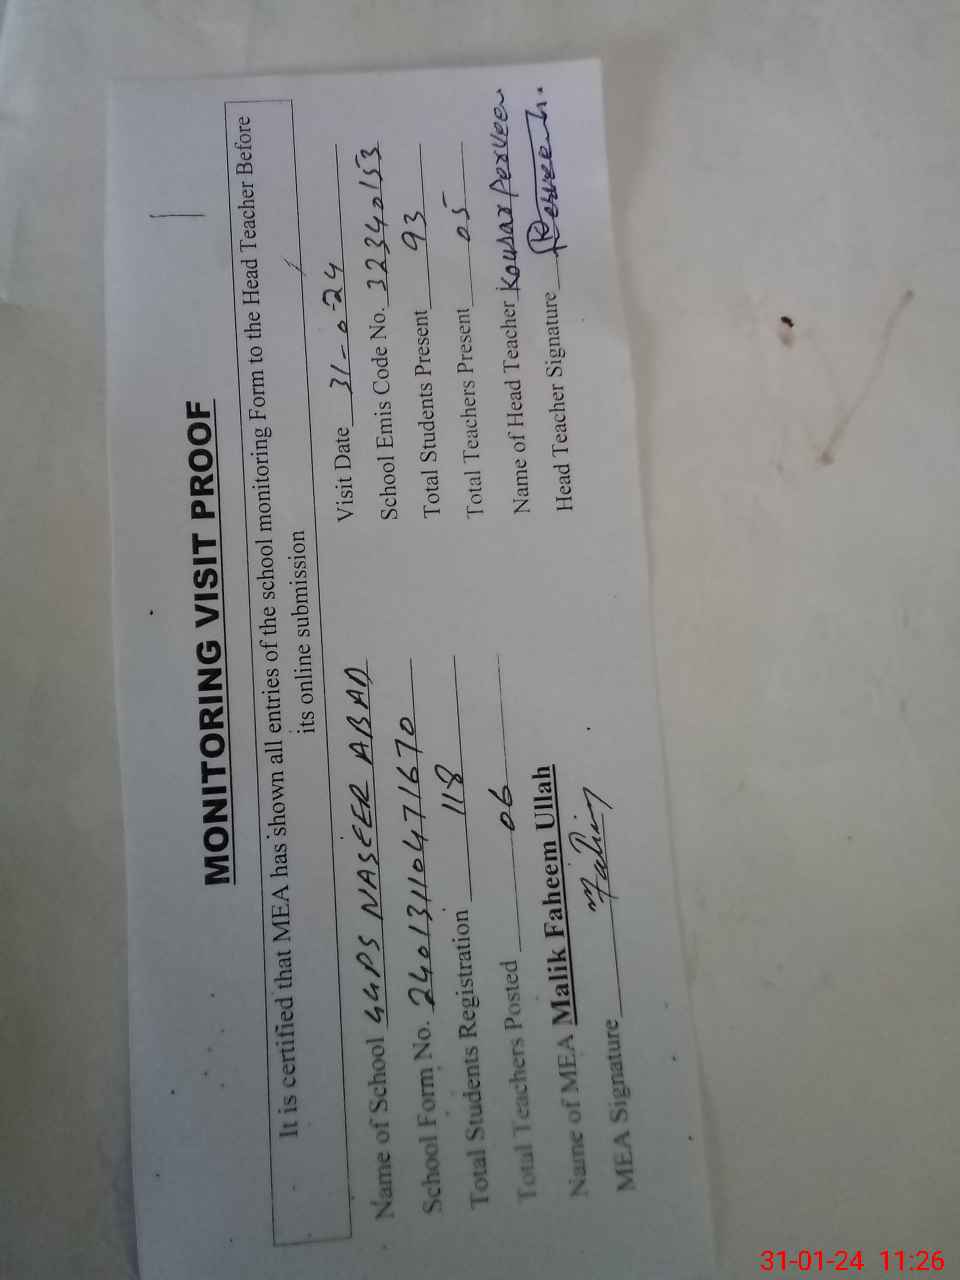 MONITORING VISIT PROOF
It is certified that MEA has shown all entries of the school monitoring Form to the Head Teacher Before
its online submission
Name of School GGPS NASEER ABAD
Visit Date 31-024
School Form No. 2401311047 1670
School Emis Code No. 32340153
Total Students Registration 118
Total Students Present 93
Total Teachers Posted 06
Total Teachers Present 05
Name of MEA Malik Faheem Ullah
Name of Head Teacher Kousar Perveen
MEA Signature Fahim
Head Teacher Signature Perveen k.
31-01-24 11:26